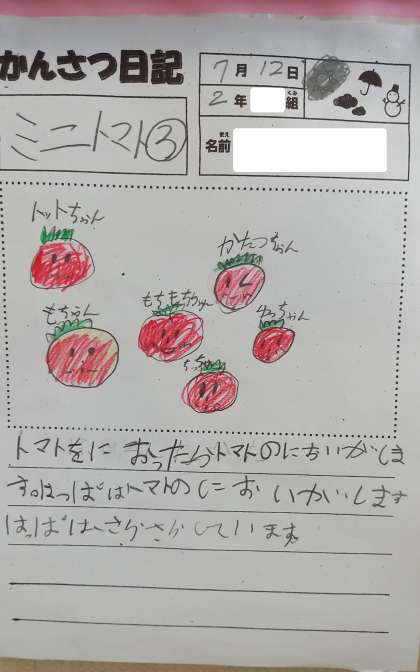 かんさつ日記
7月12日
2年 組
くみ
ミニトマト③
名前
まえ
トットちゃん
かたつちゃん
もちもちちゃん
もちゃん
ゆっちゃん
トマトを
トマトのにおいがしま
す。はっぱはトマトの します
はっぱはさらさらしています。